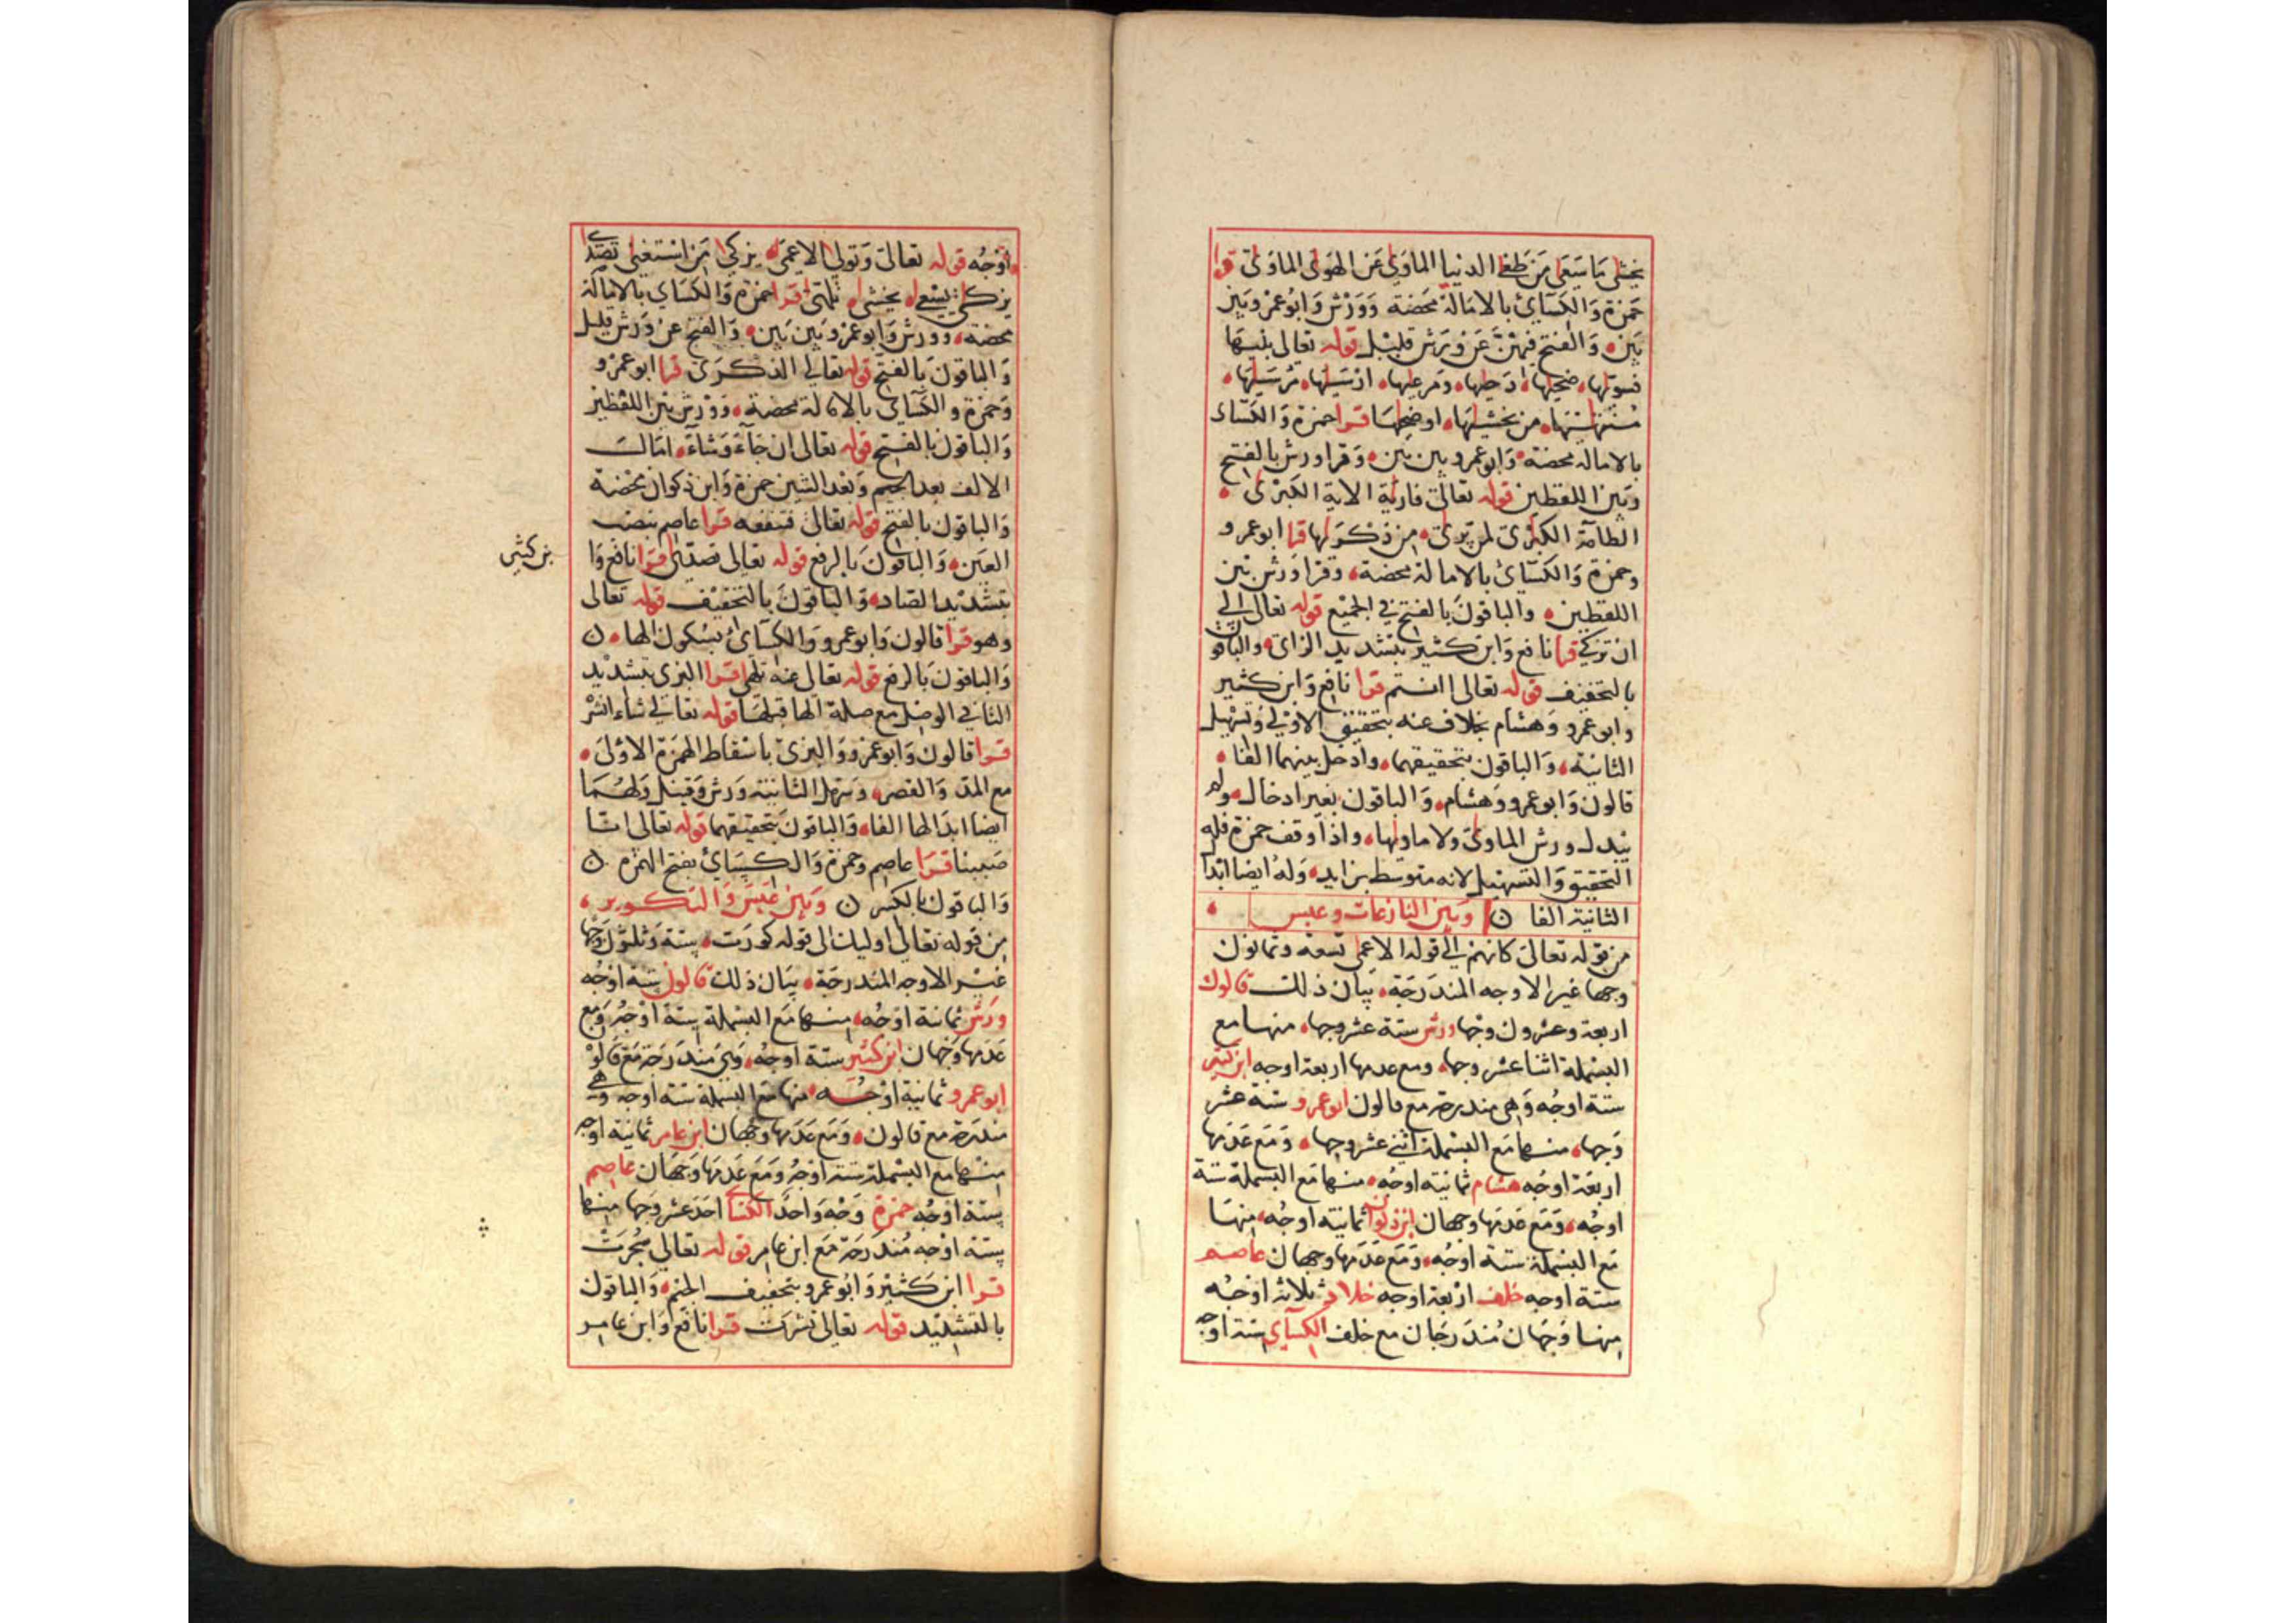 يخشى ما سعى من طغى الدنيا الماوى عن الهوى الماوى قرا
حمزة والكساى بالامالة محضة وورش وابو عمرو بين
بين والفتح فيهن عن ورش قليل قوله تعالى بنيها
فسويها ضحيها دحيها ومرعيها ارسيها مرسيها
منتهيها من يخشيها او ضحيها قرا حمزة والكساى
بالامالة محضة وابو عمرو بين بين وقرا ورش بالفتح
وبين اللفظين قوله تعالى فاريه الاية الكبرى
الطامة الكبرى لمن يرى من ذكريها قرا ابو عمرو
وحمزة والكساى بالامالة محضة وقرا ورش بين
اللفظين والباقون بالفتح في الجميع قوله تعالى الى
ان تزكى قرا نافع وابن كثير بتشديد الزاى والباقون
بالتخفيف قوله تعالى اانتم قرا نافع وابن كثير
وابو عمرو وهشام بخلاف عنه بتحقيق الاولى وتسهيل
الثانية والباقون بتحقيقهما وادخل بينهما الفا
قالون وابو عمرو وهشام والباقون بغير ادخال ولم
يبدل ورش الماوى ولا ماويها واذا وقف حمزة فله
التحقيق والتسهيل لانه متوسط بزايد وله ايضا ابدا
الثانية الفا وبين النازعات وعبس
من قوله تعالى كانهم الى قوله الاعمى تسعة وثمانون
وجها غير الاوجه المندرجة بيان ذلك قالون
اربعة وعشرون وجها ورش ستة عشر وجها منها مع
البسملة اثنا عشر وجها ومع عدمها اربعة اوجه ابن كثير
ستة اوجه وهى مندرجة مع قالون ابو عمرو ستة عشر
وجها منها مع البسملة اثني عشر وجها ومع عدمها
اربعة اوجه هشام ثمانية اوجه منها مع البسملة ستة
اوجه ومع عدمها وجهان ابن ذكوان ثمانية اوجه منها
مع البسملة ستة اوجه ومع عدمها وجهان عاصم
ستة اوجه خلف اربعة اوجه خلاد ثلاثة اوجه
منها وجهان مندرجان مع خلف الكساى ستة اوجه
اوجه قوله تعالى وتولى الاعمى يزكى من استغنى تصدى
يزكى يسعى يخشى تلهى قرا حمزة والكساى بالامالة
محضة وورش وابو عمرو بين بين والفتح عن ورش قليل
والباقون بالفتح قوله تعالى الذكرى قرا ابو عمرو
وحمزة والكساى بالامالة محضة وورش بين اللفظين
والباقون بالفتح قوله تعالى ان جآءه وشآء امالت
الالف بعد الجيم وبعد الشين حمزة وابن ذكوان محضة
والباقون بالفتح قوله تعالى فتنفعه قرا عاصم بنصب
العين والباقون بالرفع قوله تعالى تصدى قرا نافع وا
بن كثير
بتشديد الصاد والباقون بالتخفيف قوله تعالى
وهو قرا قالون وابو عمرو والكساى بسكون الها
والباقون بالرفع قوله تعالى عنه تلهى قرا البزى بتشديد
التا في الوصل مع صلة الها قبلها قوله تعالى شاء انشر
قرا قالون وابو عمرو والبزى باسقاط الهمزة الاولى
مع المد والقصر وسهل الثانية ورش وقنبل ولهما
ايضا ابدالها الفا والباقون بتحقيقهما قوله تعالى انا
صببنا قرا عاصم وحمزة والكساى بفتح الهمزة
والباقون بالكسر وبين عبس والتكوير
من قوله تعالى اوليك الى قوله كورت ستة وثلثون وجها
غير الاوجه المندرجة بيان ذلك قالون ستة اوجه
ورش ثمانية اوجه منها مع البسملة ستة اوجه ومع
عدمها وجهان ابن كثير ستة اوجه وهى مندرجة مع قالون
ابو عمرو ثمانية اوجه منها مع البسملة ستة اوجه وهى
مندرجة مع قالون ومع عدمها وجهان ابن عامر ثمانية اوجه
منها مع البسملة ستة اوجه ومع عدمها وجهان عاصم
ستة اوجه حمزة وجه واحد الكساى احد عشر وجها منها
ستة اوجه مندرجة مع ابن عامر قوله تعالى سجرت
قرا ابن كثير وابو عمرو بتخفيف الجيم والباقون
بالتشديد قوله تعالى نشرت قرا نافع وابن عامر